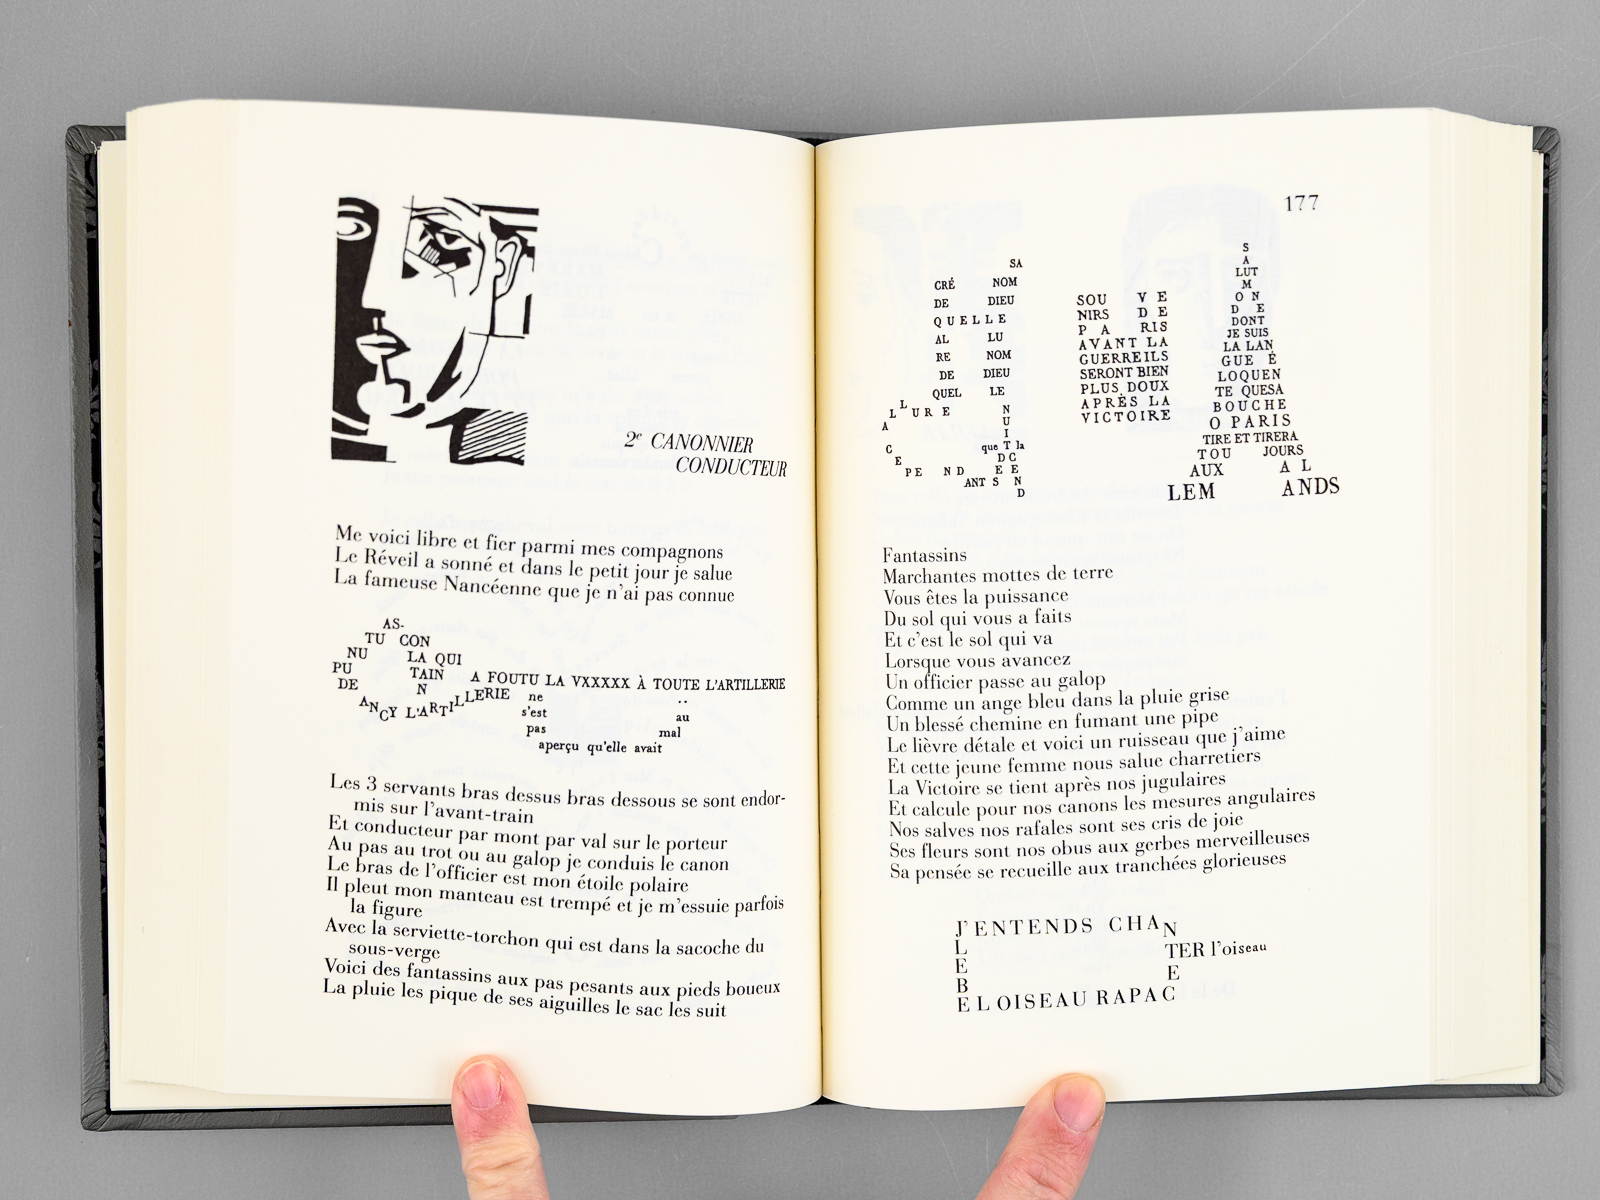 2e CANONNIER
CONDUCTEUR
Me voici libre et fier parmi mes compagnons
Le Réveil a sonné et dans le petit jour je salue
La fameuse Nancéenne que je n'ai pas connue
AS-
TU CON
NU LA QUI
PU TAIN A FOUTU LA VXXXXX À TOUTE L'ARTILLERIE
DE N
ANCY L'ARTILLERIE ne
s'est au
pas mal
aperçu qu'elle avait
Les 3 servants bras dessus bras dessous se sont endor-
mis sur l'avant-train
Et conducteur par mont par val sur le porteur
Au pas au trot ou au galop je conduis le canon
Le bras de l'officier est mon étoile polaire
Il pleut mon manteau est trempé et je m'essuie parfois
la figure
Avec la serviette-torchon qui est dans la sacoche du
sous-verge
Voici des fantassins aux pas pesants aux pieds boueux
La pluie les pique de ses aiguilles le sac les suit
177
SA
CRÉ NOM
DE DIEU
QUELLE
AL LU
RE NOM
DE DIEU
QUEL LE
ALLURE N
U
I
que T la
CEPENDANT S
DESCEND
SOU VE
NIRS DE
PA RIS
AVANT LA
GUERRE ILS
SERONT BIEN
PLUS DOUX
APRÈS LA
VICTOIRE
S
A
LUT
M
O N
D E
DONT
JE SUIS
LA LAN
GUE É
LOQUEN
TE QUE SA
BOUCHE
O PARIS
TIRE ET TIRERA
TOU JOURS
AUX A L
LEM ANDS
Fantassins
Marchantes mottes de terre
Vous êtes la puissance
Du sol qui vous a faits
Et c'est le sol qui va
Lorsque vous avancez
Un officier passe au galop
Comme un ange bleu dans la pluie grise
Un blessé chemine en fumant une pipe
Le lièvre détale et voici un ruisseau que j'aime
Et cette jeune femme nous salue charretiers
La Victoire se tient après nos jugulaires
Et calcule pour nos canons les mesures angulaires
Nos salves nos rafales sont ses cris de joie
Ses fleurs sont nos obus aux gerbes merveilleuses
Sa pensée se recueille aux tranchées glorieuses
J'ENTENDS CHAN
L TER l'oiseau
E E
B
EL OISEAU RAPAC